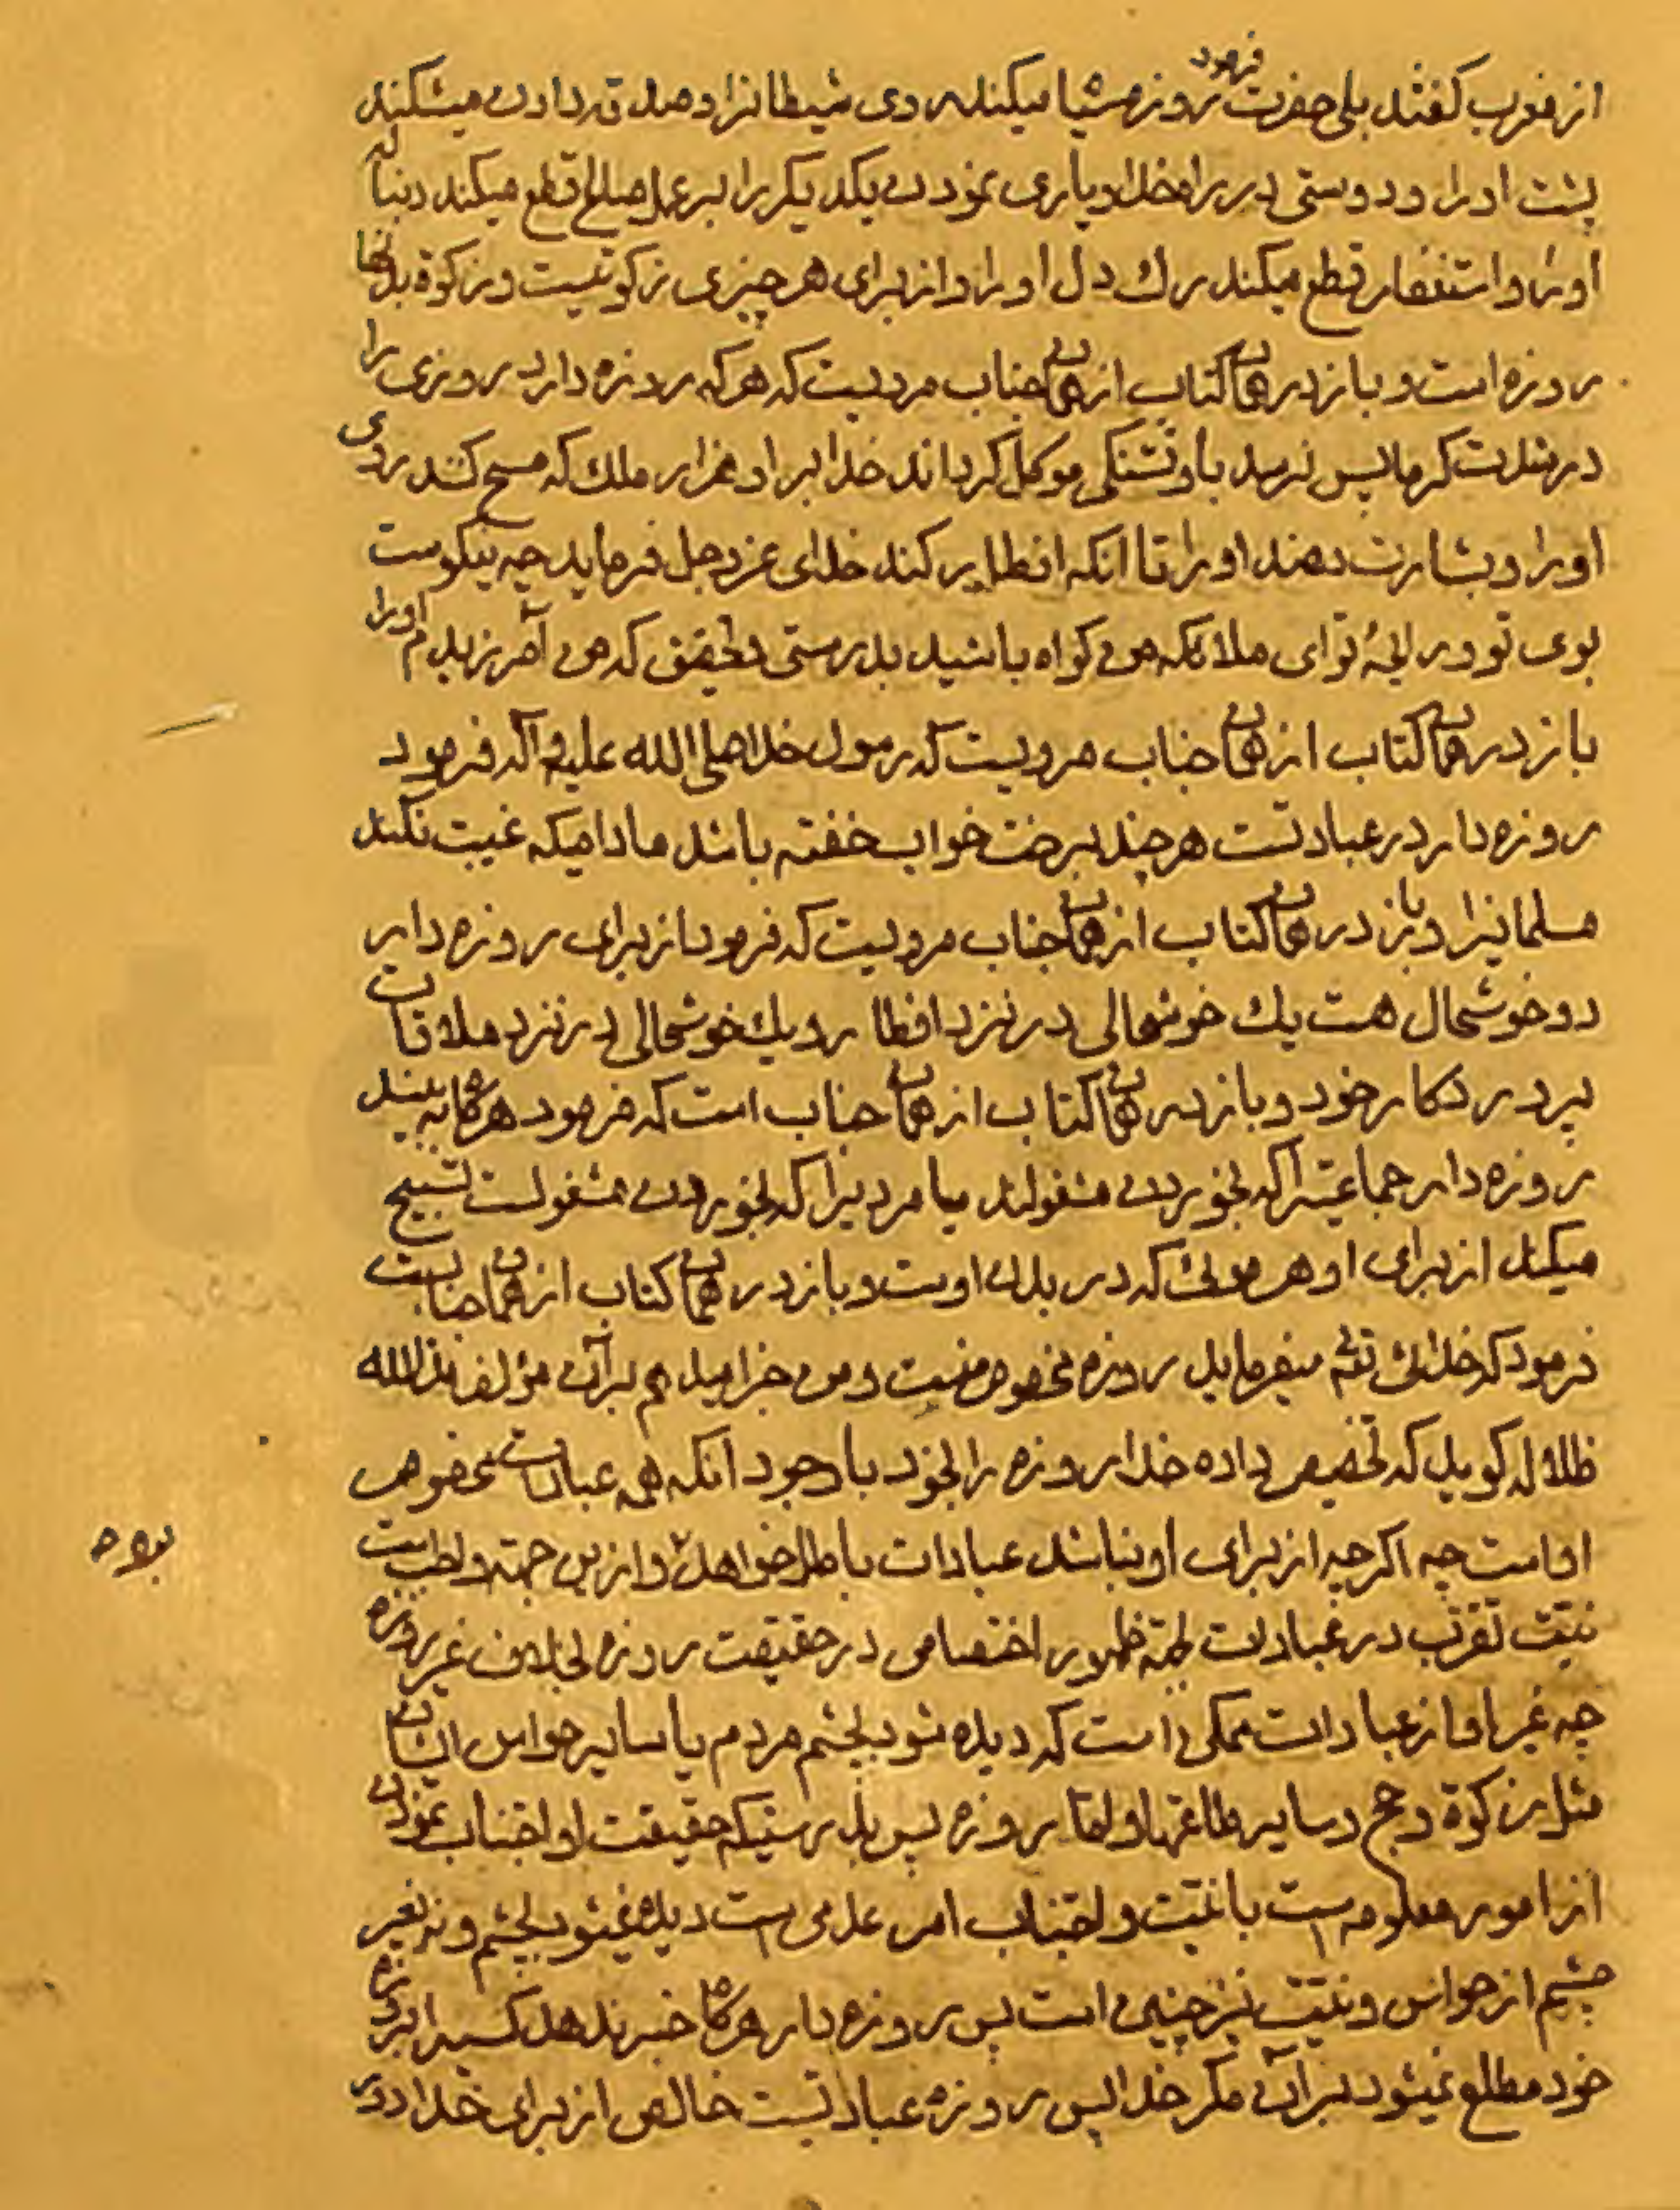 از مغرب گفتند بلی حضرت فرمود روزه سیا میکند روی شیطانرا و صدقه دادن میشکند
پشت او را و دوستی در راه خدا و یاری نمودن یکدیگر را بر عمل صالح قطع میکند دنباله
او را و استغفار قطع میکند رک دل او را و از برای هر چیزی زکوتیست و زکوة بدنها
روزه است و باز در همان کتاب از همان جناب مرویست که هر که روزه دارد روزی را
در شدت کرما پس برسد باو تشنکی موکل کرداند خدا بر او هزار ملك که مسح کنند روی
او را و بشارت دهند او را تا انکه افطار کند خدای عز و جل فرماید چه نیکوست
بوی تو و رایحهٔ تو ای ملائکه من کواه باشید بدرستی و تحقیق که من آمرزیدم او را
باز در همان کتاب از همان جناب مرویست که رسول خدا صلی الله علیه و آله فرمود
روزه دار در عبادتست هر چند بر رخت خواب خفته باشد مادامیکه غیبت نکند
مسلمانیرا و باز در همان کتاب از همان جناب مرویست که فرمود از برای روزه دار
دو خوشحال هست یك خوشحالی در نزد افطار و یك خوشحالی در نزد ملاقات
پروردکار خود و باز در همان کتاب از همان جناب است که فرمود هرکاه به بیند
روزه دار جماعتیرا که بخوردن مشغولند یا مردیرا که بخوردن مشغولست تسبیح
میکند از برای او هر موئی که در بدن اوست و باز در همان کتاب از همان جنابست
فرمود که خدای تعالی میفرماید روزه مخصوص منست و من جزا میدهم بر آن مؤلف مد الله
ظلاله کوید که تخصیص داده خدا روزه را بخود با وجود انکه همه عبادات مخصوص
او است چه اکر چه از برای او نباشد عبادات باطل خواهد و ازین جهة واجبست
بود ح
نیت تقرب در عبادات بجهة ظهور اختصاص در حقیقت روزه بخلاف غیر روزه
چه غیر او از عبادات ممکن است که دیده شود بچشم مردم یا سایر حواس ایشان
مثل زکوة و حج و سایر طاعتها و اما روزه پس بدرستیکه حقیقت او اجتناب نمودن
از امور معلومه است با نیت و اجتناب امر عدمی است دیده نمیشود بچشم و نه بغیر
چشم از حواس و نیت نیز چنین است پس روزه دار هرکاه خبر ندهد کسیرا بروزه
خود مطلع نمیشود بر آن مکر خدا پس روزه عبادتیست خالص از برای خدا و